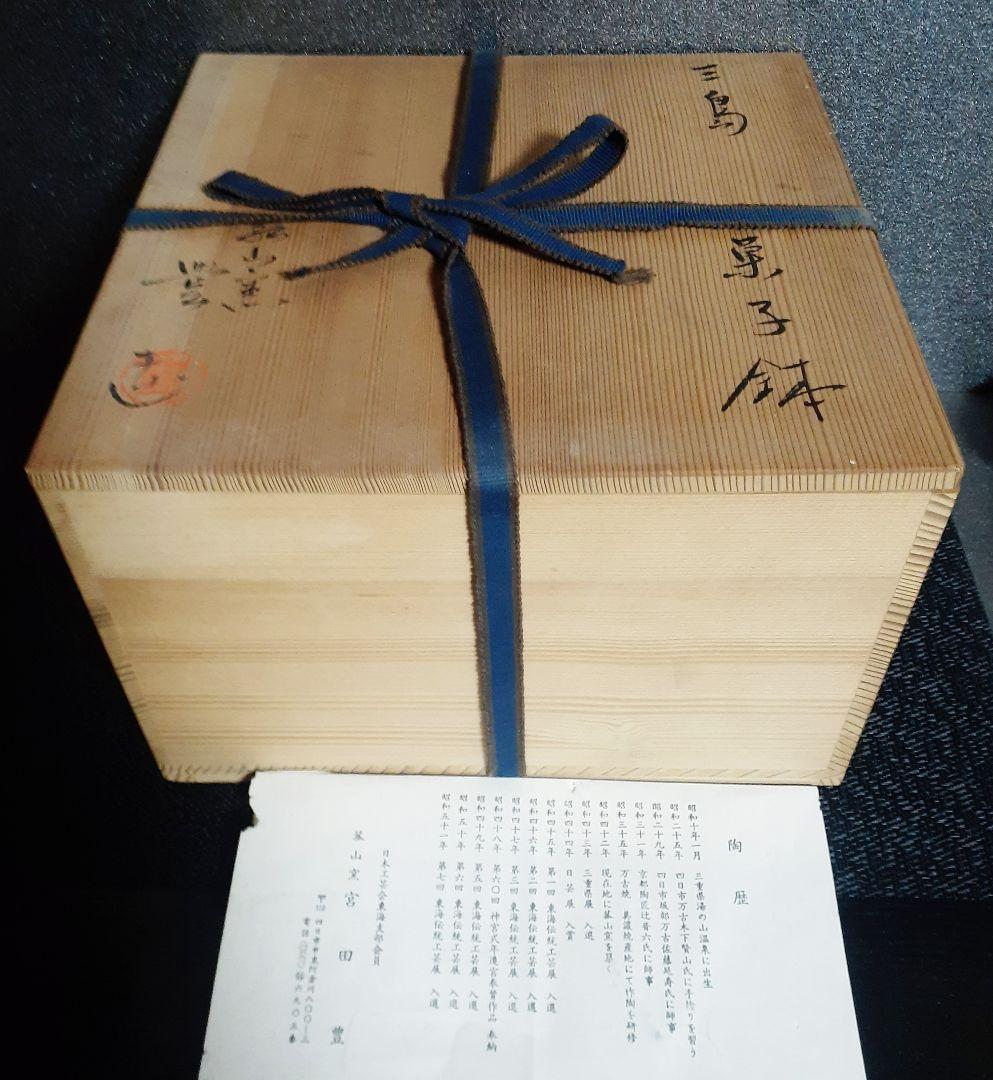 三島
菓子鉢
陶歴
昭和十年一月 三重県湯の山温泉に出生
昭和二十五年 四日市万古木下賢山氏に手捻りを習う
昭和二十九年 四日市坂部万古佐藤延寿氏に師事
昭和三十一年 京都陶匠辻晋六氏に師事
昭和三十五年 万古焼 美濃焼産地にて作陶を研修
昭和四十二年 現在地に菻山窯を築く
昭和四十三年 三重県展 入選
昭和四十四年 日芸展 入賞
昭和四十五年 第一回 東海伝統工芸展 入選
昭和四十六年 第二回 東海伝統工芸展 入選
昭和四十七年 第三回 東海伝統工芸展 入選
昭和四十八年 第六〇回 神宮式年遷宮奉賛作品 奉納
昭和四十九年 第五回 東海伝統工芸展 入選
昭和五十年 第六回 東海伝統工芸展 入選
昭和五十一年 第七回 東海伝統工芸展 入選
日本工芸会東海支部会員
山窯 宮田 豊
四日市市東阿倉川八〇〇-三
電話